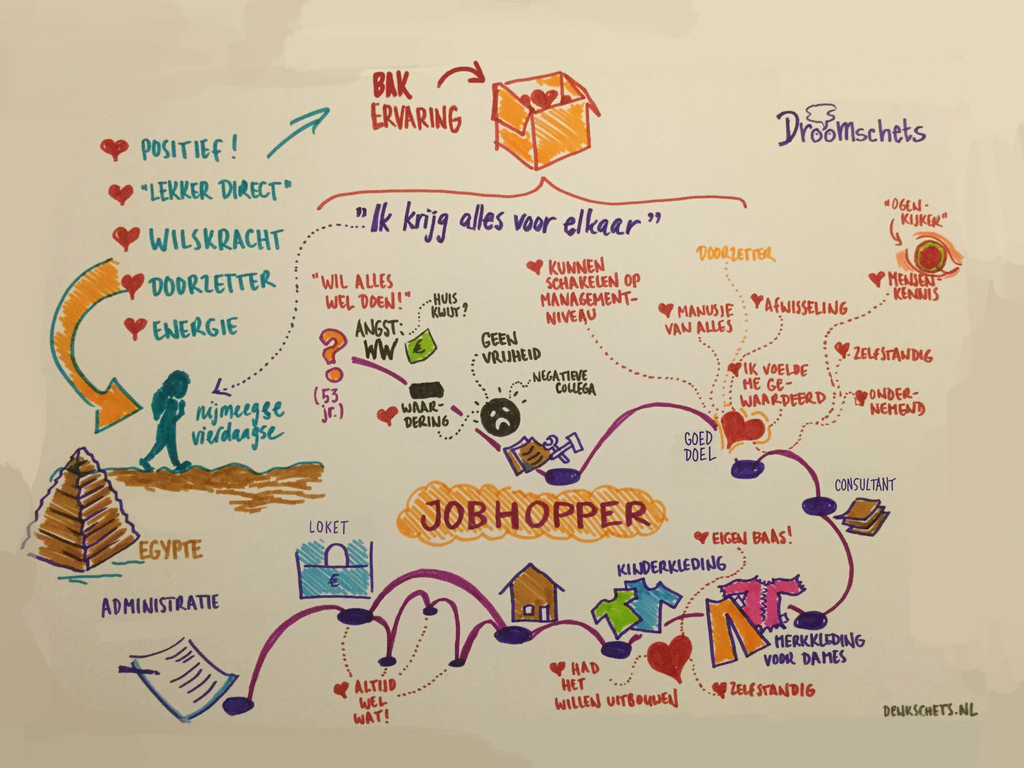 BAK
ERVARING
Droomschets
POSITIEF!
"LEKKER DIRECT"
WILSKRACHT
DOORZETTER
ENERGIE
"Ik krijg alles voor elkaar"
"OGEN-
KIJKER"
MENSEN-
KENNIS
ZELFSTANDIG
ONDER-
NEMEND
DOORZETTER
AFWISSELING
MANUSJE
VAN ALLES
IK VOELDE
ME GE-
WAARDEERD
KUNNEN
SCHAKELEN OP
MANAGEMENT-
NIVEAU
"WIL ALLES
WEL DOEN!"
?
(53
jr.)
ANGST:
WW
€
HUIS
KWIJT?
GEEN
VRIJHEID
NEGATIEVE
COLLEGA
WAAR-
DERING
nijmeegse
vierdaagse
EGYPTE
GOED
DOEL
CONSULTANT
JOBHOPPER
LOKET
€
ADMINISTRATIE
ALTIJD
WEL
WAT!
KINDERKLEDING
EIGEN BAAS!
HAD
HET
WILLEN UITBOUWEN
MERKKLEDING
VOOR DAMES
ZELFSTANDIG
DENKSCHETS.NL